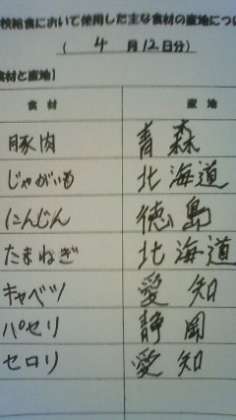 校給食において使用した主な食材の産地につ
( 4 月 12 日分)
食材と産地】
食材 産地
豚肉 青森
じゃがいも 北海道
にんじん 徳島
たまねぎ 北海道
キャベツ 愛知
パセリ 静岡
セロリ 愛知